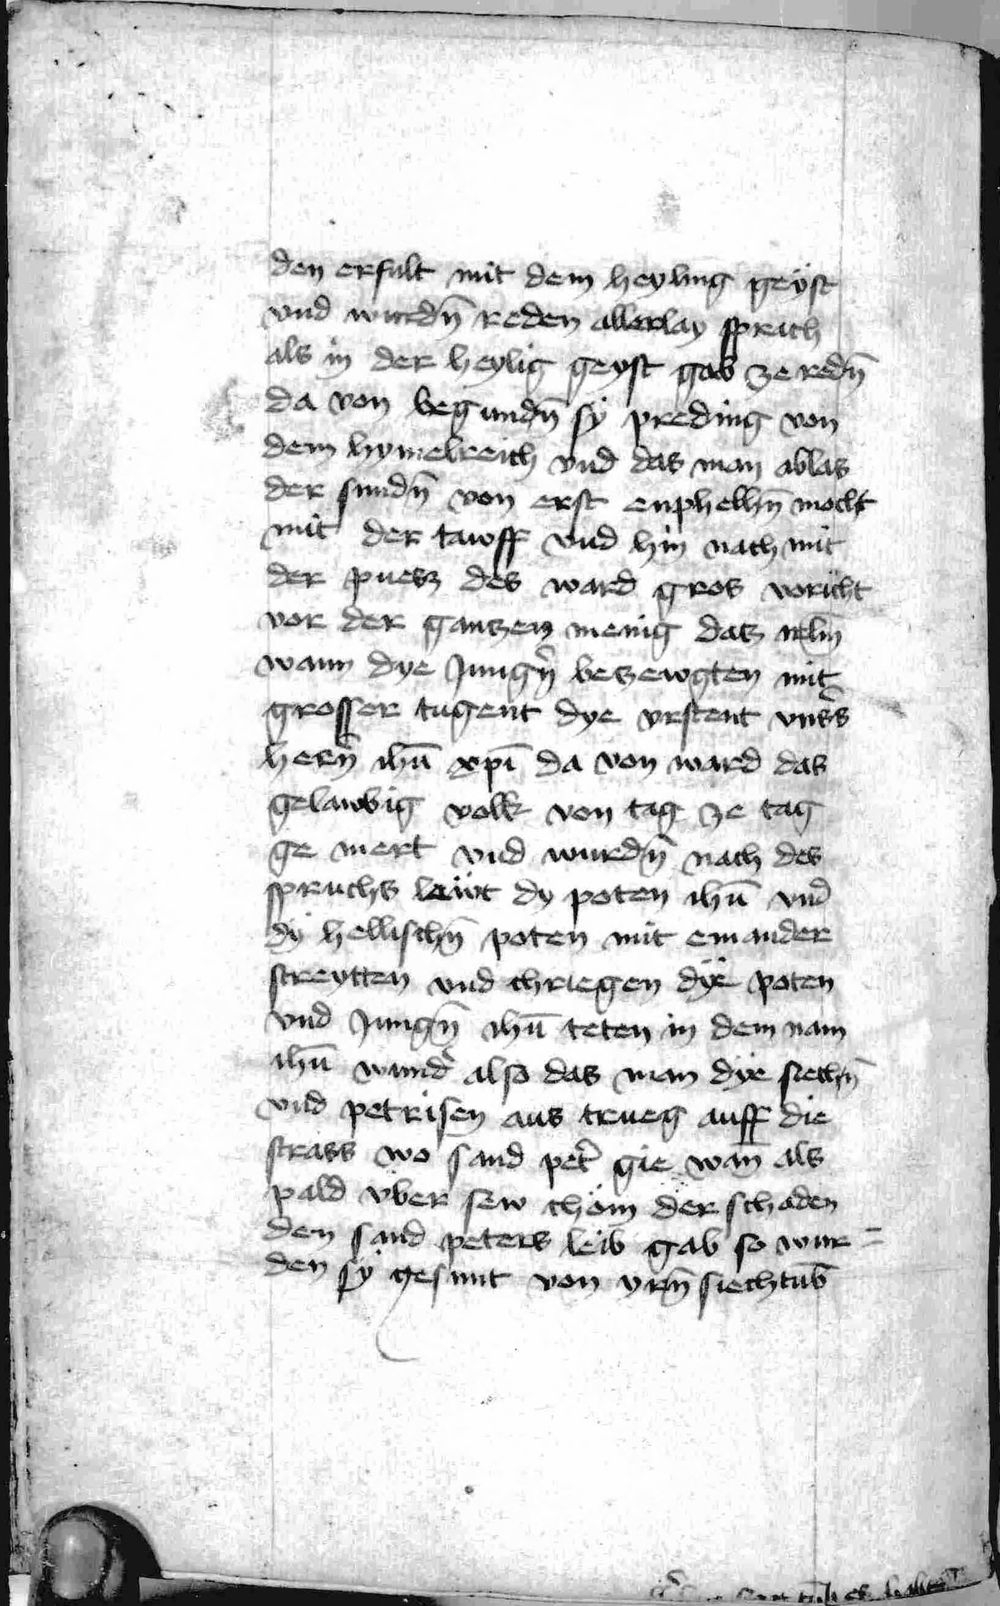 den erfult mit dem heyling geyst
vnd wurdn̄ reden allerlay sprach
als in der heylig geyst gab ze redn̄
da von begundn̄ sÿ preding von
dem hymelreich vnd das man ablas
der sundn̄ von erst enphelhn̄ mocht
mit der tawff vnd hin nach mit
der puesz des ward gros voricht
vor der ganzen menig daz
wann dye Jungn̄ bezewgten mit
grosser tugent dye vrstent vnss
hern̄ ihū xpī da von ward das
gelawbig volk von tag ze tag
ge mert vnd wurdn̄ nach des
spruchs lawt dy poten ihū vnd
dÿ hellischn̄ poten mit einander
streytten vnd chriegen dÿe poten
vnd Jungn̄ ihū teten in dem nam
ihū wund̄ also das man dÿe siechn̄
vnd petrisen aus trueg auff die
strass wo sand pet̄ gie wan̄ als
pald vber sew chöm der schaden
den sand peters leib gab so wur=
den sÿ gesunt von yrn̄ siechtūb